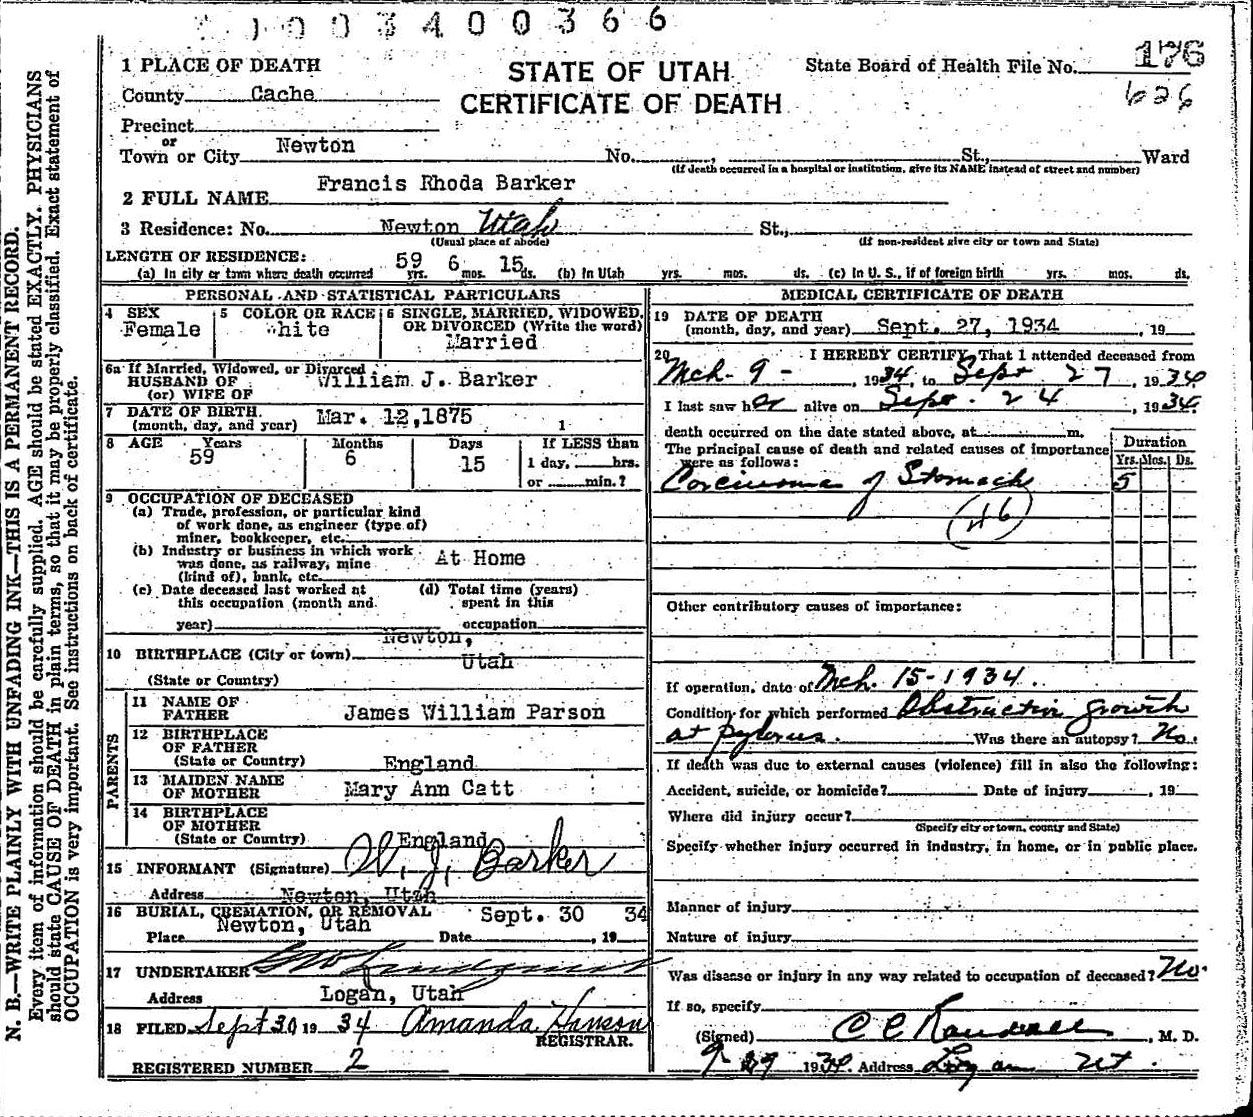 1003400366
1 PLACE OF DEATH
County Cache
Precinct
or
Town or City Newton No. , St., Ward
(If death occurred in a hospital or institution, give its NAME instead of street and number)
STATE OF UTAH
CERTIFICATE OF DEATH
State Board of Health File No. 176
626
2 FULL NAME Francis Rhoda Barker
3 Residence: No. Newton Utah St.,
(Usual place of abode) (If non-resident give city or town and State)
LENGTH OF RESIDENCE:
(a) In city or town where death occurred 59 yrs. 6 mos. 15 ds. (b) In Utah yrs. mos. ds. (c) In U. S., if of foreign birth yrs. mos. ds.
PERSONAL AND STATISTICAL PARTICULARS
4 SEX
Female
5 COLOR OR RACE
White
6 SINGLE, MARRIED, WIDOWED, OR DIVORCED (Write the word)
Married
6a If Married, Widowed, or Divorced
HUSBAND OF William J. Barker
(or) WIFE OF
7 DATE OF BIRTH
(month, day, and year) Mar. 12, 1875 1
8 AGE Years Months Days If LESS than
59 6 15 1 day, hrs.
or min.?
9 OCCUPATION OF DECEASED
(a) Trade, profession, or particular kind
of work done, as engineer (type of)
miner, bookkeeper, etc.
(b) Industry or business in which work
was done, as railway, mine
(kind of), bank, etc. At Home
(c) Date deceased last worked at
this occupation (month and
year)
(d) Total time (years)
spent in this
occupation
10 BIRTHPLACE (City or town) Newton,
Utah
(State or Country)
PARENTS
11 NAME OF
FATHER James William Parson
12 BIRTHPLACE
OF FATHER
(State or Country) England
13 MAIDEN NAME
OF MOTHER Mary Ann Catt
14 BIRTHPLACE
OF MOTHER
(State or Country) England
15 INFORMANT (Signature) W. J. Barker
Address Newton, Utah
16 BURIAL, CREMATION, OR REMOVAL Sept. 30 34
Newton, Utah
Place Date , 19
17 UNDERTAKER
Address Logan, Utah
18 FILED Sept 30 19 34 Amanda Hanson
REGISTRAR.
REGISTERED NUMBER 2
MEDICAL CERTIFICATE OF DEATH
19 DATE OF DEATH
(month, day, and year) Sept. 27, 1934 , 19
20 I HEREBY CERTIFY, That I attended deceased from
Mch. 9 - , 1934, to Sept 27, 1934
I last saw her alive on Sept. 24, 1934.
death occurred on the date stated above, at m.
The principal cause of death and related causes of importance
were as follows:
Duration
Yrs. Mos. Ds.
Carcinoma of Stomach 5
(46)
Other contributory causes of importance:
If operation, date of Mch. 15-1934.
Condition for which performed Obstructin growth
at pylorus. Was there an autopsy? No.
If death was due to external causes (violence) fill in also the following:
Accident, suicide, or homicide? Date of injury , 19
Where did injury occur?
(Specify city or town, county and State)
Specify whether injury occurred in industry, in home, or in public place.
Manner of injury
Nature of injury
Was disease or injury in any way related to occupation of deceased? No.
If so, specify
(Signed) C C Randall , M. D.
9-29 1934. Address Logan Ut.
N. B.—WRITE PLAINLY WITH UNFADING INK—THIS IS A PERMANENT RECORD.
Every item of information should be carefully supplied. AGE should be stated EXACTLY. PHYSICIANS
should state CAUSE OF DEATH in plain terms, so that it may be properly classified. Exact statement of
OCCUPATION is very important. See instructions on back of certificate.